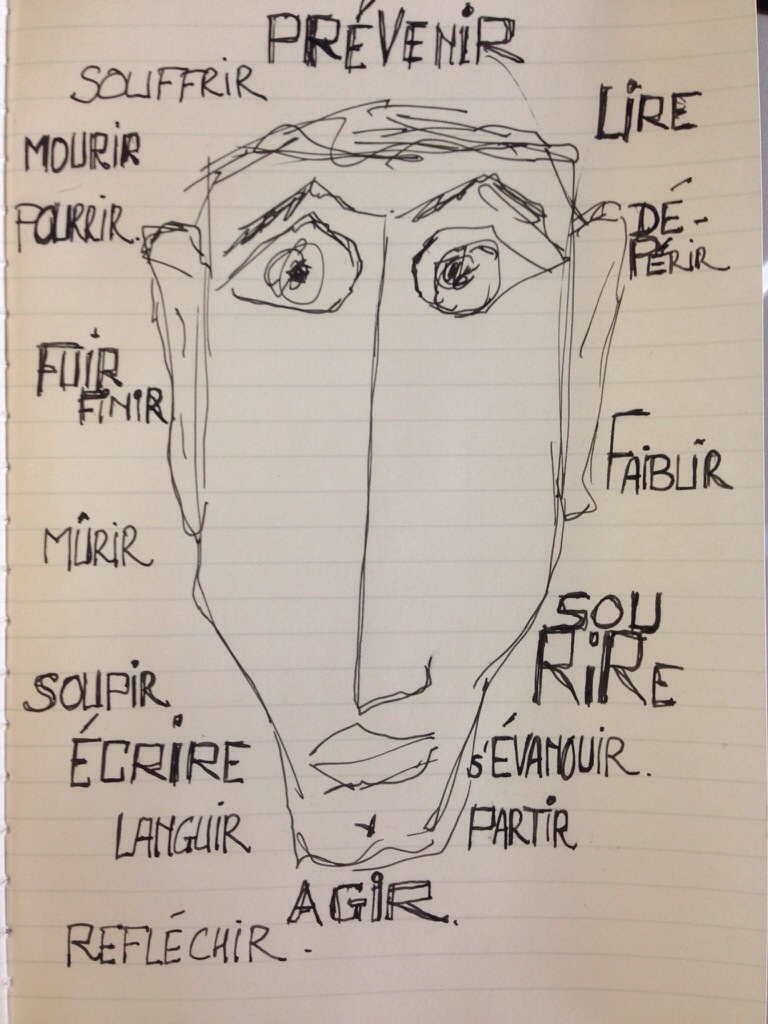 PRÉVENIR
SOUFFRIR
LIRE
MOURIR
POURRIR.
DÉ-
PÉRIR
FUIR
FINIR
FAIBLIR
MÛRIR
SOU
RIRE
SOUPIR
ÉCRIRE
S'ÉVANOUIR.
LANGUIR
PARTIR
AGIR.
REFLÉCHIR.